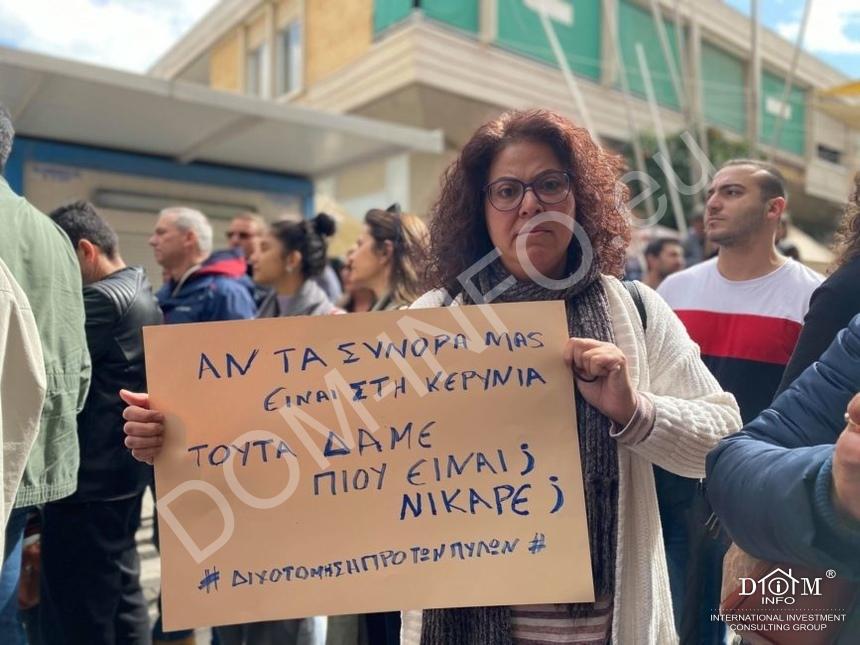 ΑΝ ΤΑ ΣΥΝΟΡΑ ΜΑΣ
ΕΙΝΑΙ ΣΤΗ ΚΕΡΥΝΙΑ
ΤΟΥΤΑ ΔΑΜΕ
ΠΙΟΥ ΕΙΝΑΙ;
ΝΙΚΑΡΕ;
# ΔΙΧΟΤΟΜΗΣΗΠΡΟΤΩΝΠΥΛΩΝ #
DOM-INFO.eu
DOM®
INFO
INTERNATIONAL INVESTMENT
CONSULTING GROUP